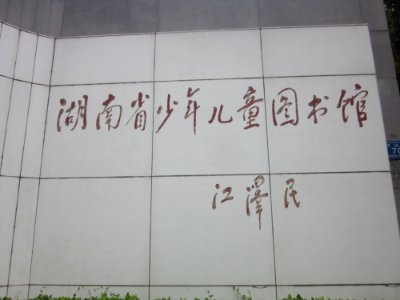 湖南省少年儿童图书馆
江泽民